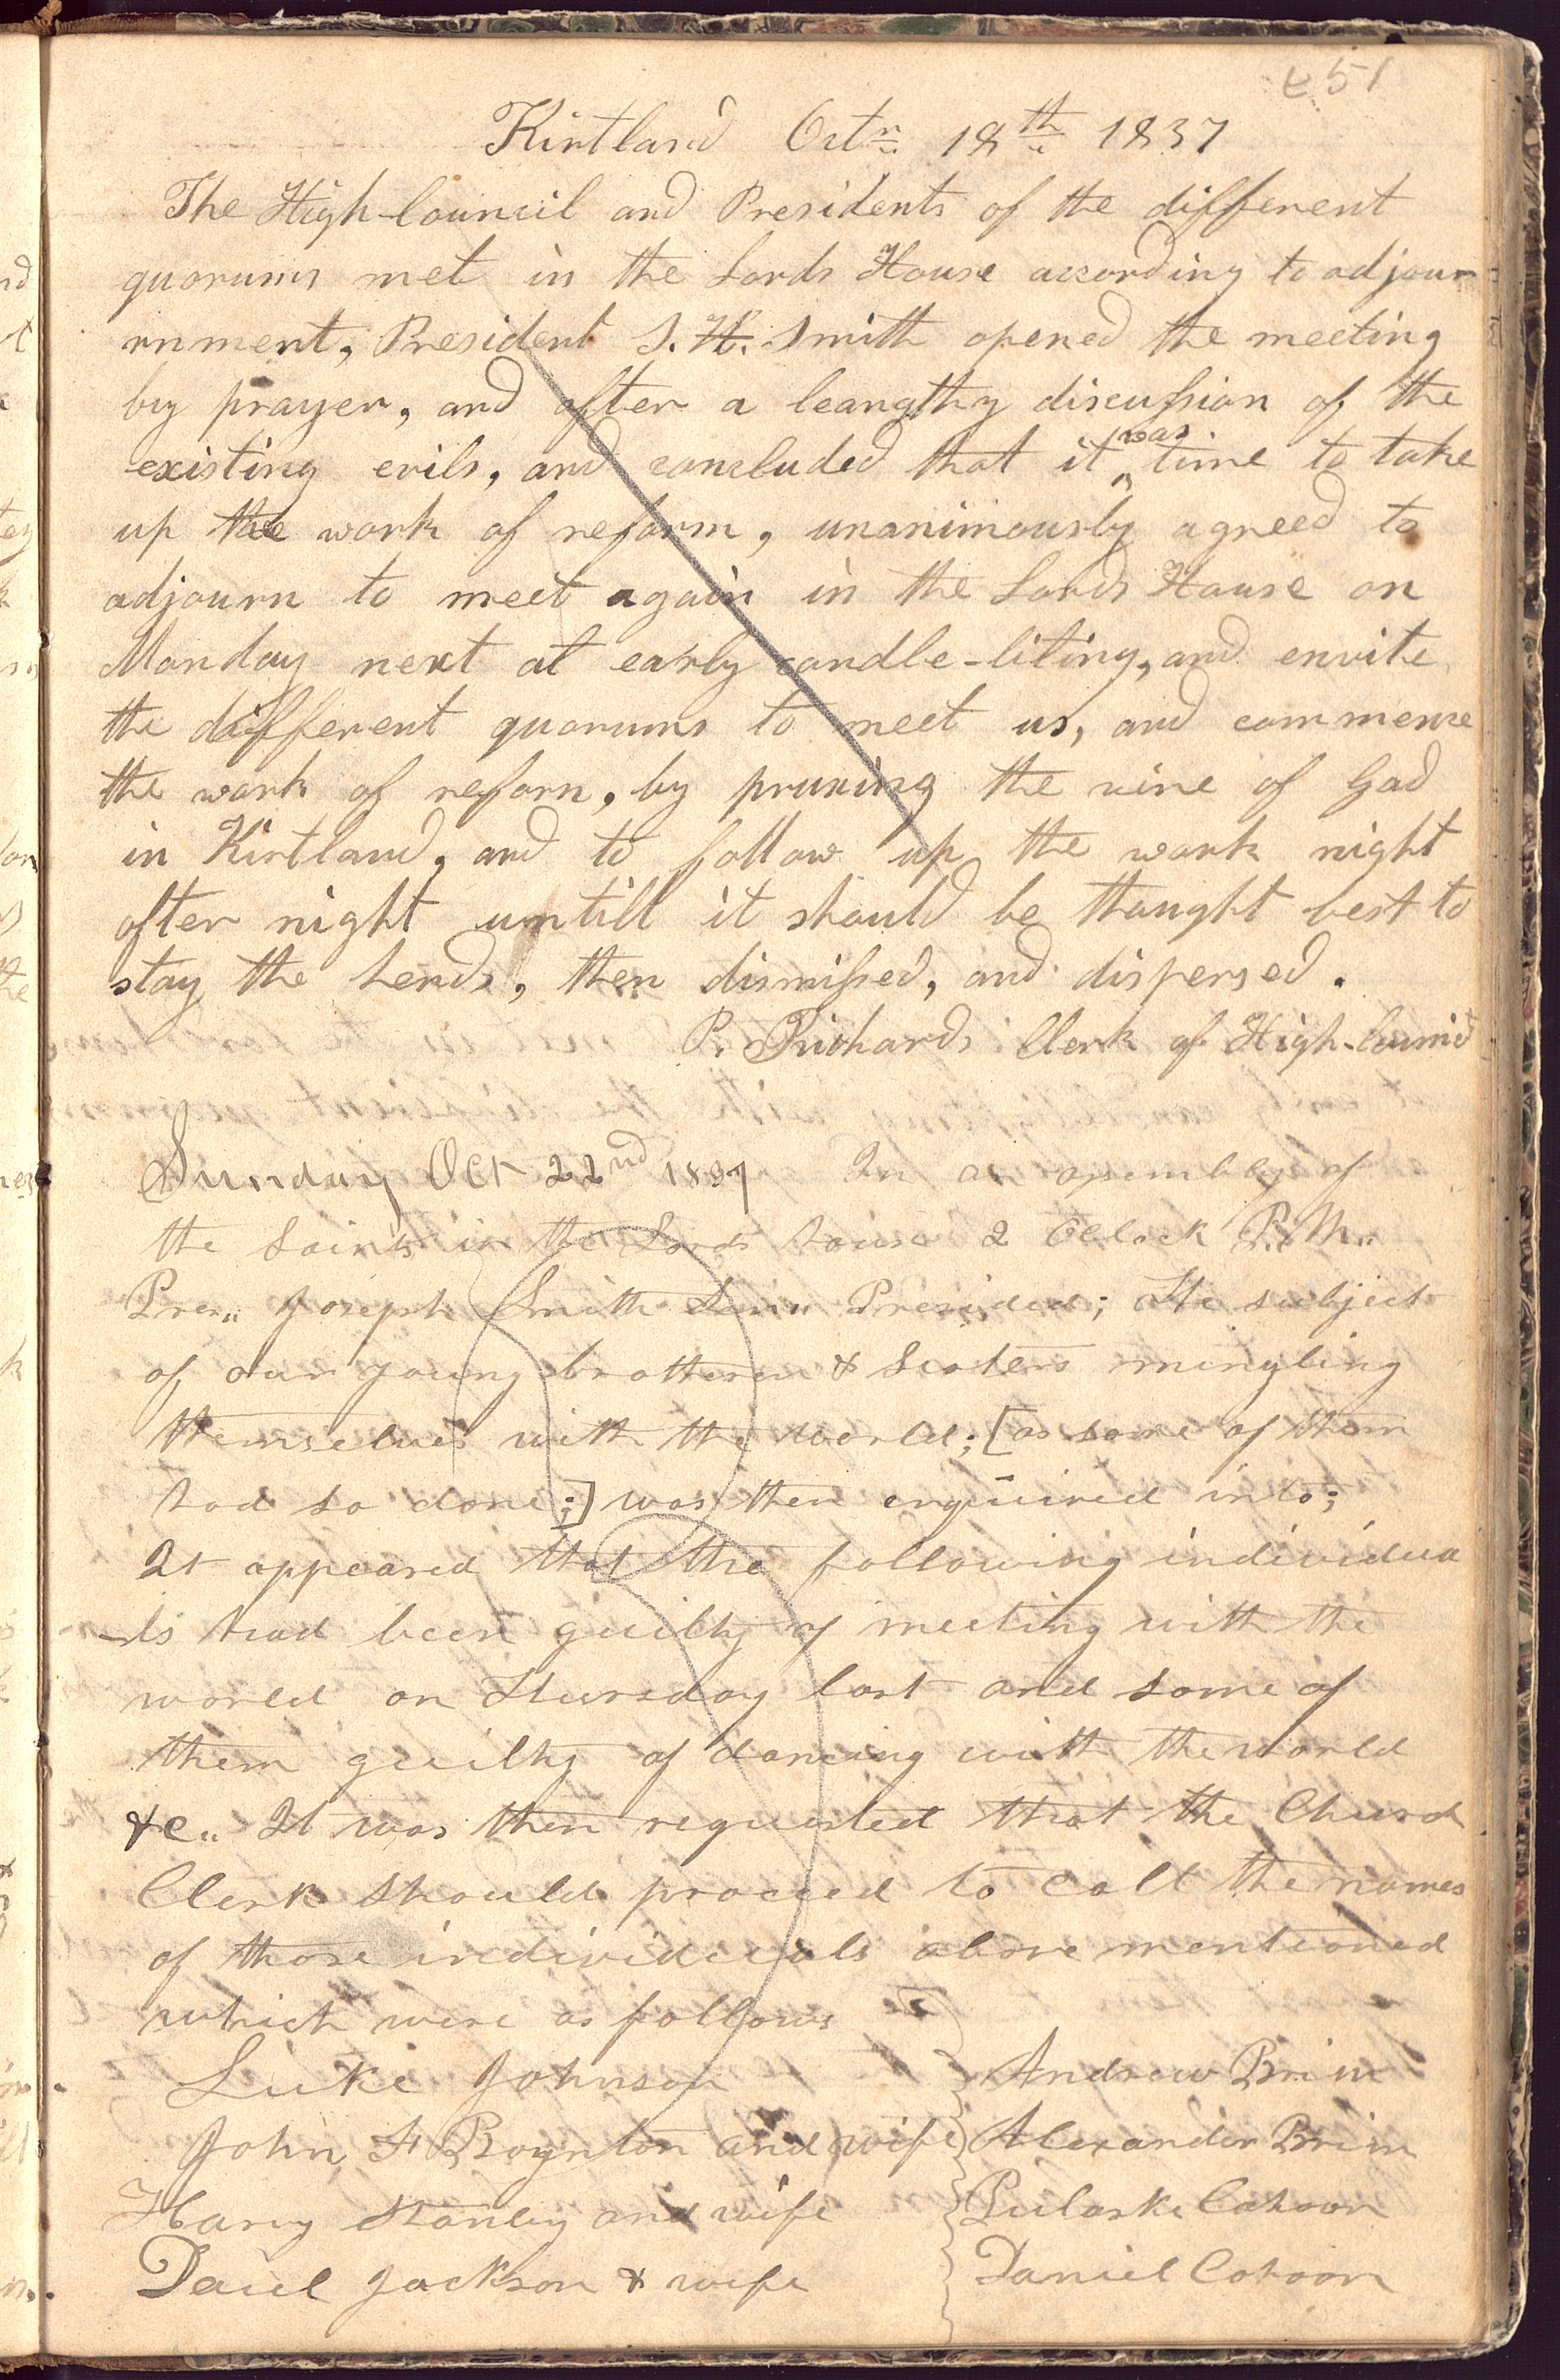 251
Kirtland Octr. 18th 1837
The High-Council and Presidents of the different
quorums met in the Lords House according to adjour-
nment, President S. H. Smith opened the meeting
by prayer, and after a leangthy discussion of the
existing evils, and concluded that it was time to take
up the work of reform, unanimously agreed to
adjourn to meet again in the Lords House on
Monday next at early candle-liting, and envite
the different quorums to meet us, and commence
the work of reforn, by pruning the vine of God
in Kirtland, and to follow up the work night
after night untill it should be thought best to
stay the hends, then dismissed, and dispersed.
P. Richards Clerk of High-Council
Sunday Oct 22nd 1837 In an assembly of
the Saints in the Lords house 2 Oclock P.M.
Pres.. Joseph Smith Sen.. Presided; The subject
of our young brotheren & Sisters mingling
themselves with the world; [as some of them
had so done;] was then enquired into;
It appeared that the following individua
-ls had been guilty of meeting with the
world on Thursday last and some of
them guilty of dancing with the world
&c.. It was then requested that the Church
Clerk should proceed to call the names
of those individuals above mentioned
which were as follows
Luke Johnson Andrew Brim
John F Boynton and wife Alexander Brim
Harvy Stanley and wife Pulaski Cahoon
Daniel Jackson & wife Daniel Cahoon